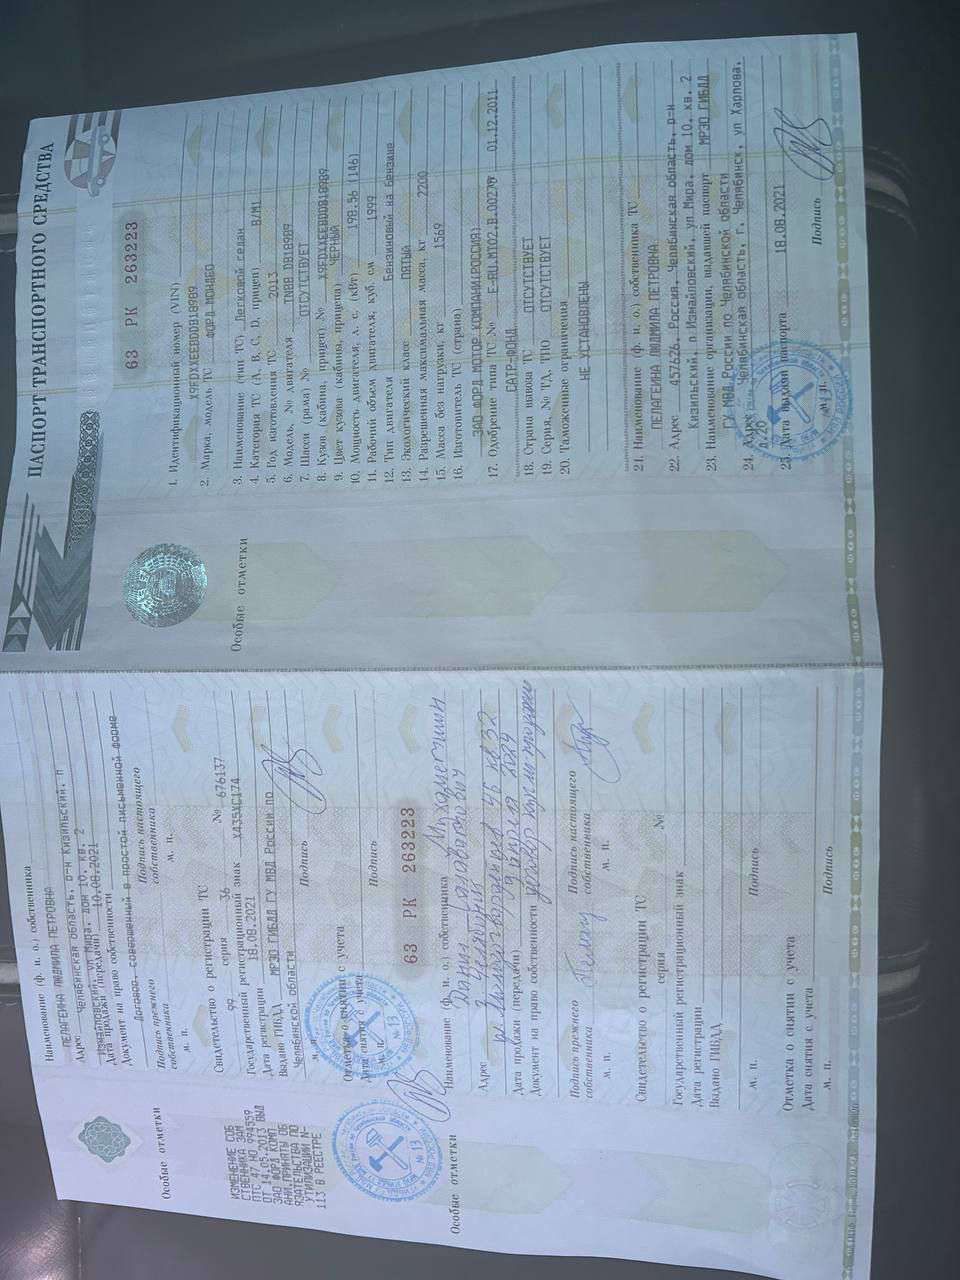 ПАСПОРТ ТРАНСПОРТНОГО СРЕДСТВА
63 РК 263223
1. Идентификационный номер (VIN)
X9FDXXEEBDDB18989
2. Марка, модель ТС ФОРД МОНДЕО
3. Наименование (тип ТС) Легковой седан
4. Категория ТС (А, В, С, D, прицеп) B/M1
5. Год изготовления ТС 2013
6. Модель, № двигателя TNBB DB18989
7. Шасси (рама) № ОТСУТСТВУЕТ
8. Кузов (кабина, прицеп) № X9FDXXEEBDDB18989
9. Цвет кузова (кабины, прицепа) ЧЕРНЫЙ
10. Мощность двигателя, л. с. (кВт) 198.56 (146)
11. Рабочий объем двигателя, куб. см 1999
12. Тип двигателя Бензиновый на бензине
13. Экологический класс ПЯТЫЙ
14. Разрешенная максимальная масса, кг 2200
15. Масса без нагрузки, кг 1569
16. Изготовитель ТС (страна)
ЗАО ФОРД МОТОР КОМПАНИ(РОССИЯ)
17. Одобрение типа ТС № E-RU.MT02.B.00279 01.12.2011
САТР-ФОНД
18. Страна вывоза ТС ОТСУТСТВУЕТ
19. Серия, № ТД, ТПО ОТСУТСТВУЕТ
20. Таможенные ограничения
НЕ УСТАНОВЛЕНЫ
21. Наименование (ф. и. о.) собственника ТС
ПЕЛАГЕИНА ЛЮДМИЛА ПЕТРОВНА
22. Адрес 457626, Россия, Челябинская область, р-н
Кизильский, п Измайловский, ул Мира, дом 10, кв. 2
23. Наименование организации, выдавшей паспорт МРЭО ГИБДД
ГУ МВД России по Челябинской области
24. Адрес Челябинская область, г. Челябинск, ул Харлова,
д.20
25. Дата выдачи паспорта 18.08.2021
М. П. Подпись
Особые отметки
Наименование (ф. и. о.) собственника
ПЕЛАГЕИНА ЛЮДМИЛА ПЕТРОВНА
Адрес Челябинская область, р-н Кизильский, п
Измайловский, ул Мира, дом 10, кв. 2
Дата продажи (передачи) 10.08.2021
Документ на право собственности
Договор, совершенный в простой письменной форме
Подпись прежнего собственника Подпись настоящего собственника
м. п. м. п.
Свидетельство о регистрации ТС
серия 99 36 № 676137
Государственный регистрационный знак Х435ХС174
Дата регистрации 18.08.2021
Выдано ГИБДД МРЭО ГИБДД ГУ МВД России по
Челябинской области
м. п. Подпись
Отметка о снятии с учета
Дата снятия с учета
м. п. Подпись
63 РК 263223
Особые отметки
ИЗМЕНЕНИЕ СОБ
СТВЕННИКА ЗАМ
ПТС 47 НО 994559
ОТ 14.05.2013 ВЫД
ЗАО ФОРД КОМП
АНИ.ПРИНЯТЫ ОБ
ЯЗАТЕЛЬСТВА ПО
УТИЛИЗАЦИИ N
113 В РЕЕСТРЕ
Наименование (ф. и. о.) собственника
Данил
Адрес г. Челябинск
46 кв 32
Дата продажи (передачи) 2024
Документ на право собственности договор купли продажи
Подпись прежнего собственника Подпись настоящего собственника
м. п. м. п.
Свидетельство о регистрации ТС
серия №
Государственный регистрационный знак
Дата регистрации
Выдано ГИБДД
м. п. Подпись
Отметка о снятии с учета
Дата снятия с учета
м. п. Подпись
Особые отметки